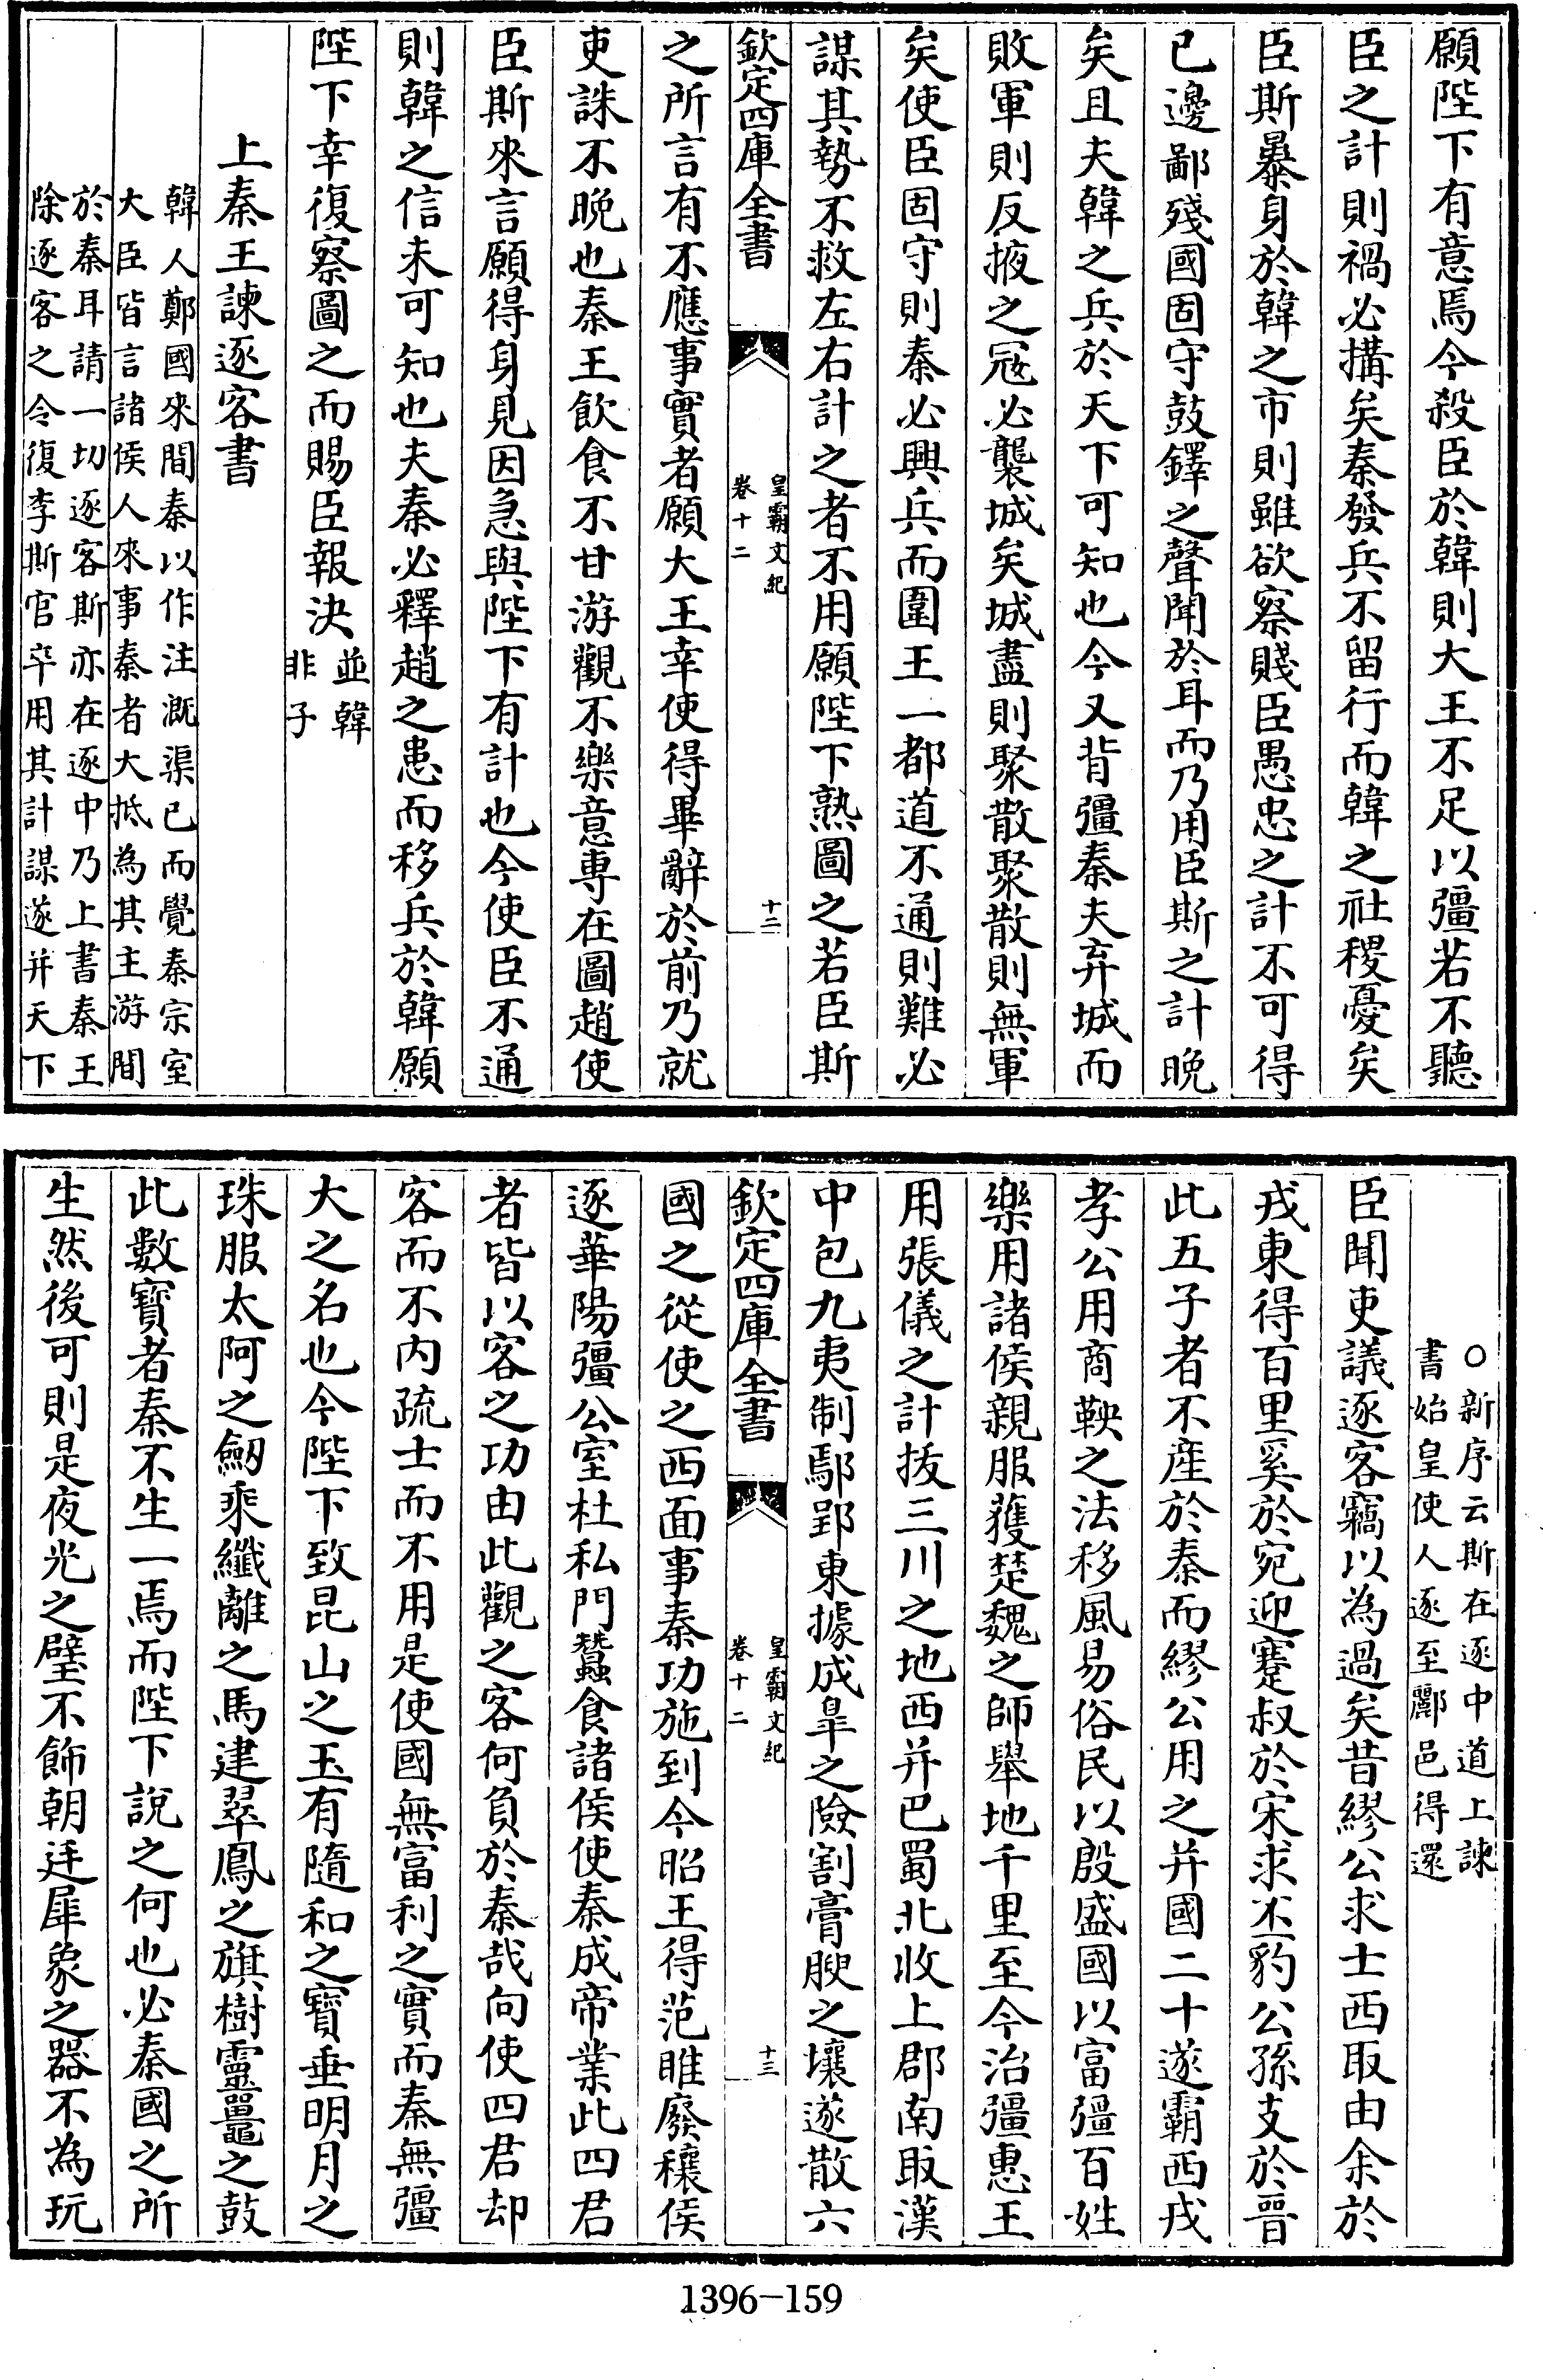 願陛下有意焉今殺臣於韓則大王不足以彊若不聽
臣之計則禍必搆矣秦發兵不留行而韓之社稷憂矣
臣斯暴身於韓之市則雖欲察賤臣愚忠之計不可得
已邊鄙殘國固守鼓鐸之聲聞於耳而乃用臣斯之計晚
矣且夫韓之兵於天下可知也今又背彊秦夫弃城而
敗軍則反掖之冦必襲城矣城盡則聚散聚散則無軍
矣使臣固守則秦必興兵而圍王一都道不通則難必
謀其勢不救左右計之者不用願陛下熟圖之若臣斯
欽定四庫全書
皇霸文紀
卷十二
十二
之所言有不應事實者願大王幸使得畢辭於前乃就
吏誅不晚也秦王飲食不甘游觀不樂意専在圖趙使
臣斯來言願得身見因急與陛下有計也今使臣不通
則韓之信未可知也夫秦必釋趙之患而移兵於韓願
陛下幸復察圖之而賜臣報決
並韓
非子
上秦王諫逐客書
韓人鄭國來間秦以作注溉渠已而覺秦宗室
大臣皆言諸侯人來事秦者大抵為其主游間
於秦耳請一切逐客斯亦在逐中乃上書秦王
除逐客之令復李斯官卒用其計謀遂并天下
○新序云斯在逐中道上諫
書始皇使人逐至酈邑得還
臣聞吏議逐客竊以為過矣昔繆公求士西取由余於
戎東得百里奚於宛迎蹇叔於宋求丕豹公孫支於晉
此五子者不産於秦而繆公用之并國二十遂霸西戎
孝公用商鞅之法移風易俗民以殷盛國以富彊百姓
樂用諸侯親服獲楚魏之師舉地千里至今治彊惠王
用張儀之計拔三川之地西并巴蜀北收上郡南取漢
中包九夷制鄢郢東據成臯之險割膏腴之壤遂散六
欽定四庫全書
皇霸文紀
卷十二
十三
國之從使之西面事秦功施到今昭王得范睢廢穰侯
逐華陽彊公室杜私門蠶食諸侯使秦成帝業此四君
者皆以客之功由此觀之客何負於秦哉向使四君却
客而不内疏士而不用是使國無富利之實而秦無彊
大之名也今陛下致昆山之玉有隨和之寳垂明月之
珠服太阿之劒乘纖離之馬建翠鳳之旗樹靈鼉之鼓
此數寳者秦不生一焉而陛下說之何也必秦國之所
生然後可則是夜光之璧不飾朝廷犀象之器不為玩
1396-159